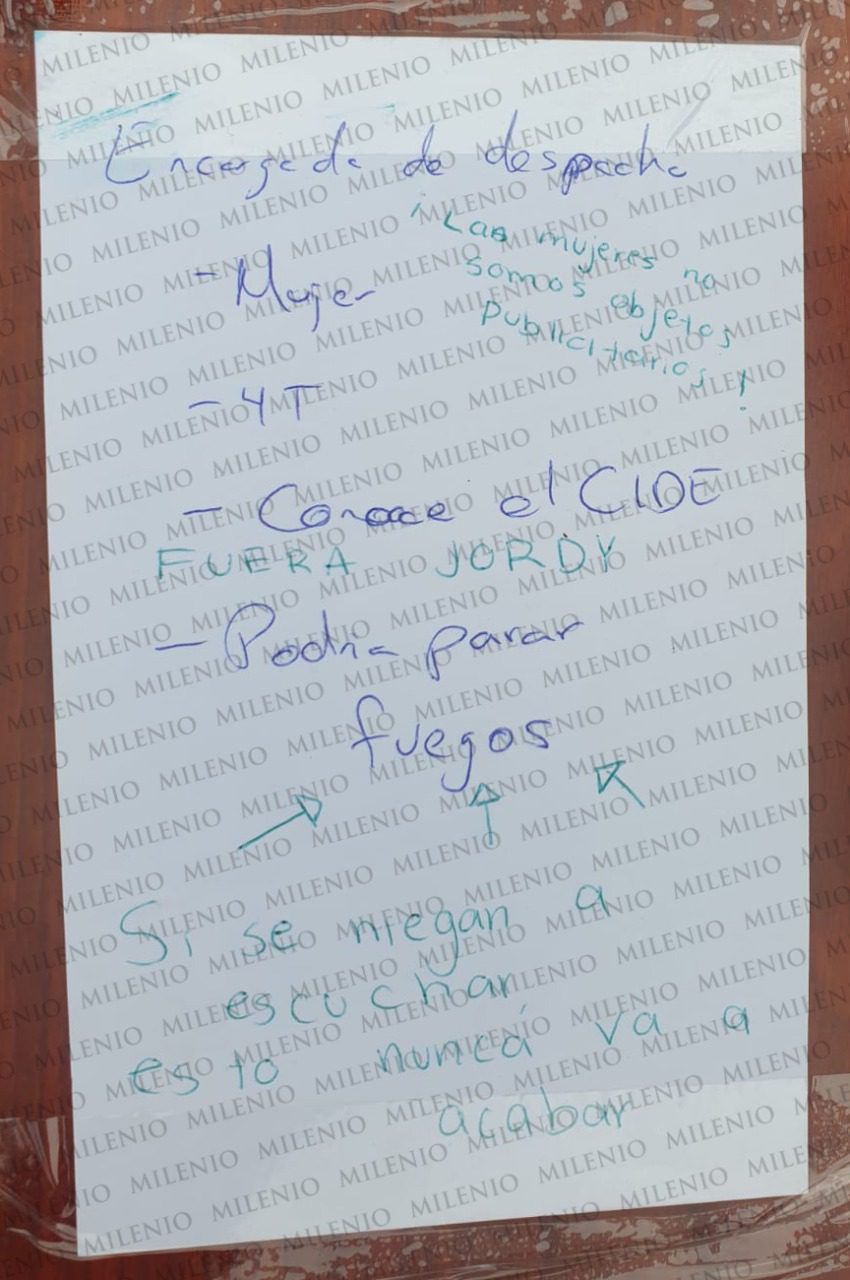 Encargada de despacho
¡Las mujeres no
somos objetos
publicitarios!
- Mujer
- 4T
- Conoce el CIDE
FUERA JORDY
- Podría parar
fuegos
Si se niegan a
escuchar
esto nunca va a
acabar
MILENIO